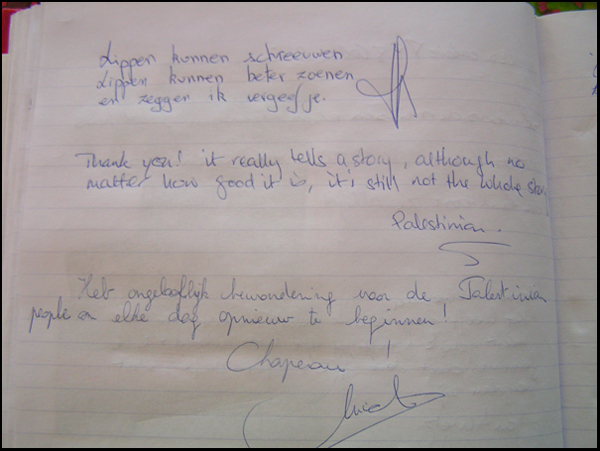 Lippen kunnen schreeuwen
Lippen kunnen beter zoenen
en zeggen ik vergeef je.
Thank you! it really tells a story, although no
matter how good it is, it's still not the whole story
Palestinian.
Heb ongelooflijk bewondering voor de Palestinian
people om elke dag opnieuw te beginnen!
Chapeau!